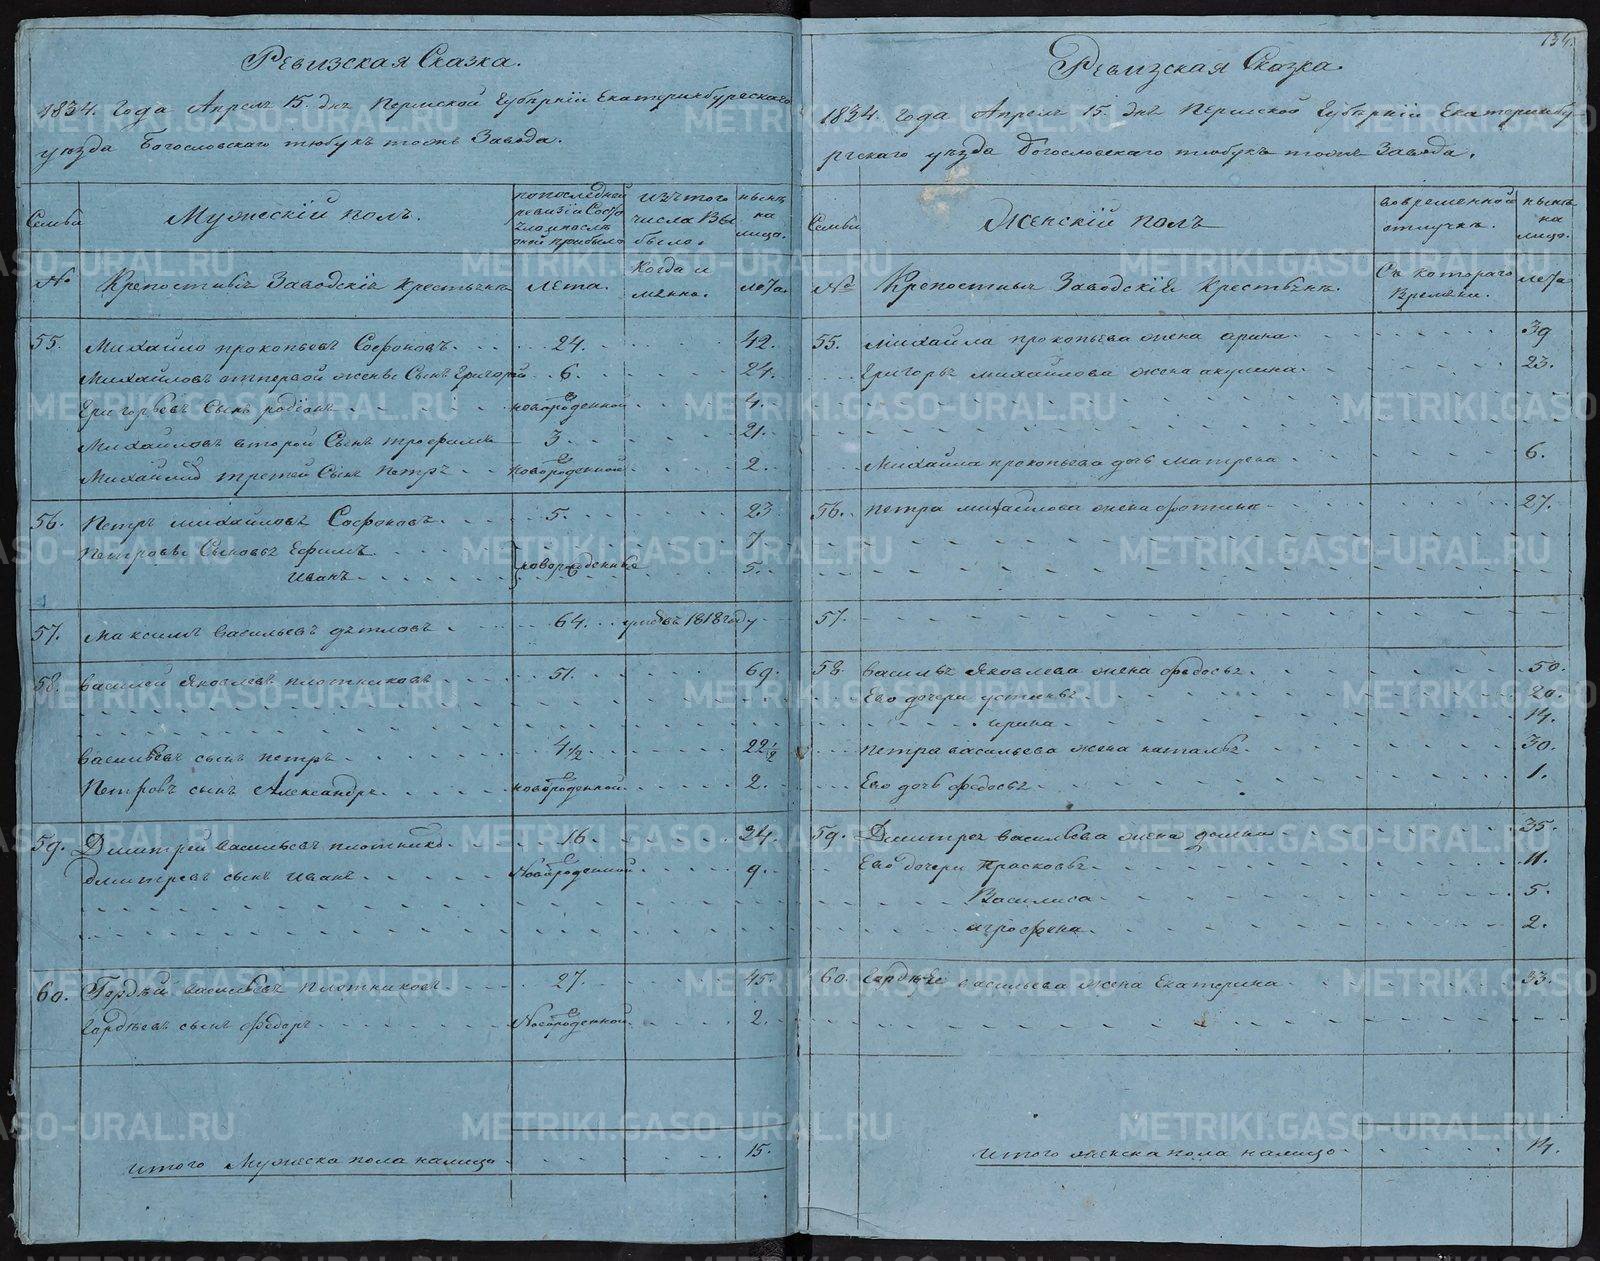 Ревизская Сказка.
1834. Года Апреля 15. дня Пермской Губернии Екатеринбургскаго
уезда Богословскаго тюбукъ тожъ Завода.
Семьи
Мужескій полъ.
по последней
ревизіи Состо
яло и после
оной прибыло
изъ того
числа Вы
было.
ныне
на
лицо.
№
Крепостные Заводскіе крестьяне
лета.
Когда и
менно.
лета
55. Михайло прокопьевъ Софоновъ. 24. 42.
Михайловъ отпервой жены Сынъ Григорей 6. 24.
Григорьевъ Сынъ родіонъ новорожденной 4.
Михайловъ второй Сынъ трофимъ 3 21.
Михайлов третей Сынъ петръ новорожденной 2.
56. Петръ михайловъ Софоновъ. 5. 23
Петровы Сыновья Ефимъ 7
Иванъ новорожденные 5.
57. Максимъ васильевъ детловъ 64. умре въ 1818 году
58. Василей Яковлевъ плотниковъ 51. 69.
васильевъ сынъ петръ 4½ 22½
Петровъ сынъ Александръ новорожденной 2.
59. Дмитрей васильевъ плотников. 16. 34.
дмитревъ сынъ иванъ Новорожденной 9.
60. Гордей васильевъ плотниковъ 27. 45.
Гордеевъ сынъ федоръ Новорожденной 2.
итого Мужеска пола налицо 15.
134.
Ревизская Сказка.
1834. Года Апреля 15. дня Пермской Губерніи Екатеринбу-
ргскаго уезда Богословскаго тюбукъ тожъ Завода.
Семьи
Женскій полъ
вовременной
отлучке.
ныне
на
лицо.
№
Крепостныя Заводскія Крестьяне.
Съ котораго
времени.
лета
55. Михайла прокопьева жена арина 39
Григорья михайлова жена акулина. 23.
Михайла прокопьева дочь матрена 6.
56. петра михайлова жена фотина 27.
57.
58. василья Яковлева жена федосья. 50.
Ево дочери устинья 20.
ирина 14.
петра васильева жена наталья 30.
Ево дочь федосья 1.
59. Дмитрея васильева жена домна 35.
Ево дочери Прасковья 11.
Василиса 5.
агрофена 2.
60. Гордея васильева жена Екатерина 33.
итого женска пола налицо 14.
METRIKI.GASO-URAL.RU